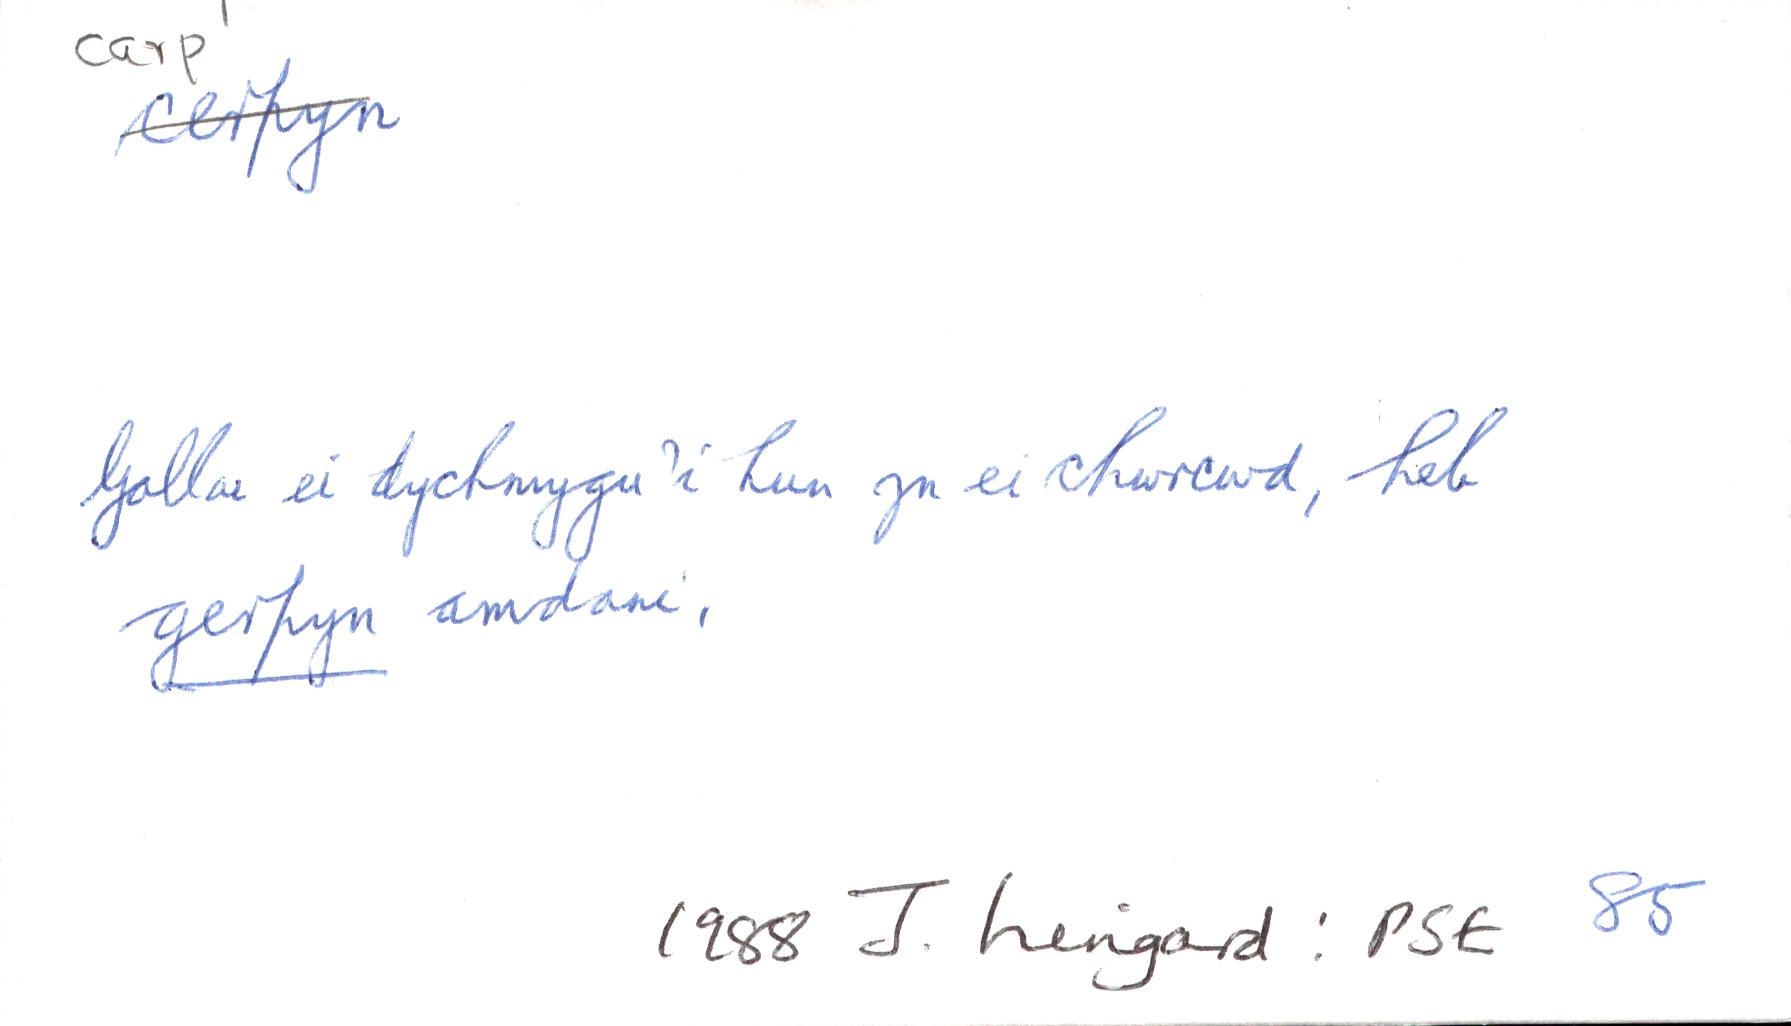 carp
cerpyn
Gallai ei dychmygu'i hun yn ei chwrcwd, heb
gerpyn amdani,
1988 J. Lingard: PSE 85